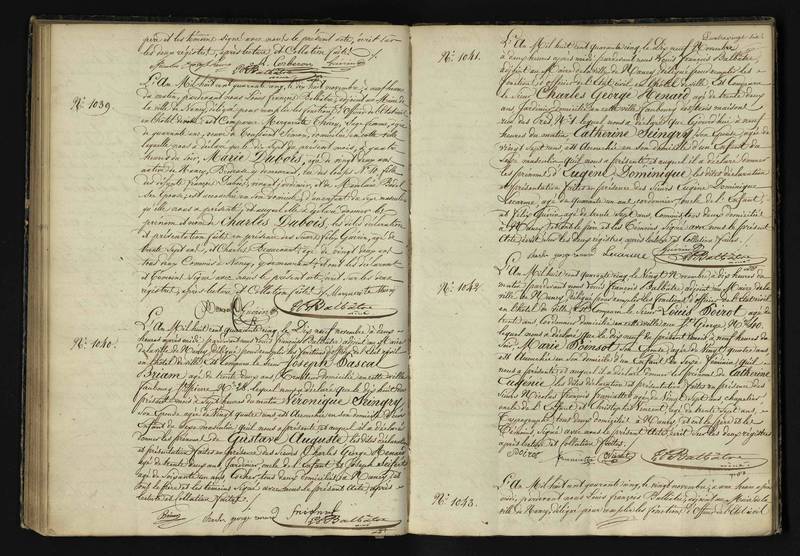 père et les témoins signé avec nous le présent acte, écrit sur
les deux registres, après lecture et Collation faite
Corberon
Balbâtre
N.° 1039
L'An Mil huit cent quarante cinq, le dix huit novembre, à neuf heures
du matin, pardevant nous Louis François Balbâtre, adjoint au Maire de
la ville de Nancy, délégué pour remplir les fonctions d'officier de l'état civil
en l'hôtel de ville, est Comparue Marguerite Thiry, Sage femme, âgée
de quarante ans, veuve de Constant Simon, domiciliée en cette ville
laquelle nous a déclaré que le dix sept du présent mois, à quatre
heures du soir, Marie Dubois, âgée de vingt deux ans
native de Nancy, Brodeuse y demeurant, rue des loups N.° 10, fille
des défunts François Dubois,
son épouse, est accouchée en son domicile d'un enfant du sexe masculin
qu'elle nous a présenté, et auquel elle a déclaré donner les
prénom et nom de Charles Dubois, les dites déclaration
et présentation faites en présence des Sieurs Félix Guérin, âgé de
trente sept ans, et Charles Beaucourt, âgé de vingt deux ans
tous deux Commis à Nancy, y demeurant et ont les déclarant
et témoins Signé avec nous le présent acte écrit sur les deux
registres, après lecture et Collation faites. Marguerite Thiry
Guérin
Balbâtre
N.° 1040.
L'An Mil huit cent quarante cinq, le Dix neuf novembre à
heures après midi, pardevant nous Louis François Balbâtre adjoint au Maire
de la ville de Nancy, délégué pour remplir les fonctions d'officier de l'état civil
en l'hôtel de ville, est Comparu le Sieur Joseph Pascal
Briam, âgé de trente deux ans domicilié en cette ville
faubourg S.t Pierre N.° lequel nous a déclaré que le dix huit du
présent mois à sept heures du matin Véronique Seingry
Son Épouse âgée de Vingt quatre ans, est Accouchée en son domicile d'un
Enfant du Sexe masculin qu'il nous a présenté et auquel il a déclaré
donner les prénoms de Gustave Auguste, les dites déclaration
et présentation faites en présence des Sieurs Charles George Renard
âgé de trente deux ans Jardinier, oncle de l'Enfant et Joseph
âgé de Soixante un ans Cocher, tous deux domiciliés à Nancy, et ont
le père et les témoins Signé avec nous le présent Acte, après
lecture et Collation faites.
Briam charle george renard
Balbâtre
N.° 1041.
L'An Mil huit cent quarante cinq le Dix neuf Novembre
à deux heures après midi, pardevant nous Louis François Balbâtre,
adjoint au Maire de la Ville de Nancy, délégué pour remplir les
fonctions d'officier de l'état civil, en l'hôtel de ville, est Comparu
le Sieur Charles George Renard, âgé de trente deux
ans, Jardinier, domicilié en cette ville faubourg des trois maisons
rue des N.° 1. lequel nous a déclaré que Aujourd'hui, à neuf
heures du matin Catherine Seingry, Son Épouse, âgée de
vingt sept ans, est Accouchée en Son domicile d'un Enfant du
Sexe masculin qu'il nous a présenté et auquel il a déclaré donner
les prénoms d'Eugène Dominique, les dites déclaration
et présentation faites en présence des Sieurs Eugène Dominique
Lucarme, âgé de quarante un ans, cordonnier, oncle de l'Enfant,
et Félix Guérin âgé de trente Sept ans, Commis, tous deux domiciliés
à Nancy, et ont le père et les témoins Signé avec nous le présent
Acte, écrit Sur les deux registres après lecture et Collation faites.
charle george renard Lucarme
Balbâtre
N.° 1042.
L'An Mil huit cent quarante cinq le Vingt Novembre à dix heures du
matin, pardevant nous Louis François Balbâtre, adjoint au Maire de la
ville de Nancy, délégué pour remplir les fonctions d'officier de l'état civil
en l'hôtel de Ville, est Comparu le Sieur Louis Poirot, âgé de
trente ans, Cordonnier, domicilié en cette ville rue S.t George, N.° 40.
lequel nous a déclaré que le dix neuf du présent mois à neuf heures du
Soir, Marie Poinsot, Son Épouse, âgée de Vingt quatre ans
est Accouchée en Son domicile d'un Enfant du Sexe féminin, qu'il
nous a présenté et auquel il a déclaré donner les prénoms de Catherine
Eugénie, les dites déclaration et présentation faites en présence des
Sieurs Nicolas François Franiatte, âgé de Vingt Sept ans, chapelier
oncle de l'Enfant, et Christophe Vincent, âgé de trente Sept ans,
Typographe, tous deux domiciliés à Nancy, et ont le père et les
témoins Signé avec nous le présent Acte, écrit sur les deux registres
après lecture et Collation faites.
Poirot Franiatte
Balbâtre
N.° 1043.
L'An Mil huit cent quarante cinq, le vingt novembre, à une heure après
midi, pardevant nous Louis François Balbâtre, adjoint au Maire de la
ville de Nancy, délégué pour remplir les fonctions d'officier de l'état civil